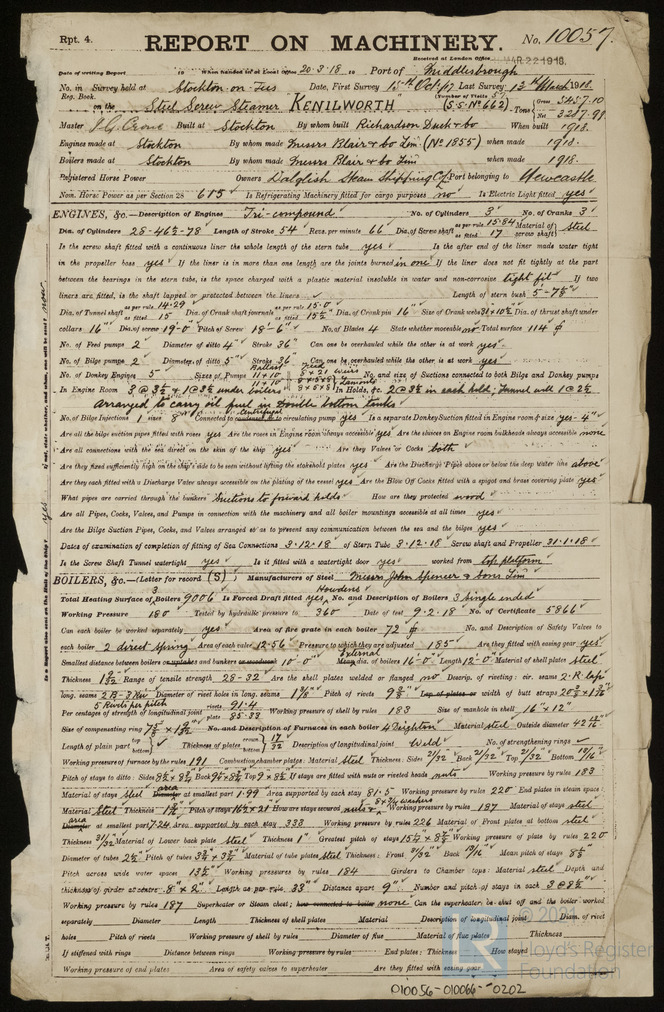 Rpt. 4.
REPORT ON MACHINERY. No. 10057.
Received at London Office MAR 22 1918.
Date of writing Report 19 When handed in at Local Office 20.3.18 19 Port of Middlesbrough
No. in Survey held at Stockton-on-Tees Date, First Survey 15th Oct/17 Last Survey 13th March 1918
Reg. Book. (Number of Visits
on the Steel Screw Steamer KENILWORTH (S.S. No 662) Tons Gross 5457.10 Net 3287.98
Master Built at Stockton By whom built Richardson Duck & Co When built 1918.
Engines made at Stockton By whom made Messrs Blair & Co Lim (No 1855) when made 1918.
Boilers made at Stockton By whom made Messrs Blair & Co Lim when made 1918.
Registered Horse Power Owners Dalgliesh Steam Shipping Co Ld Port belonging to Newcastle
Nom. Horse Power as per Section 28 615 Is Refrigerating Machinery fitted for cargo purposes no Is Electric Light fitted yes
ENGINES, &c.—Description of Engines Tri-compound No. of Cylinders 3 No. of Cranks 3
Dia. of Cylinders 28-46½-78 Length of Stroke 54 Revs. per minute 66 Dia. of Screw shaft as per rule 15.84 as fitted 17 Material of screw shaft Steel
Is the screw shaft fitted with a continuous liner the whole length of the stern tube yes Is the after end of the liner made water tight
in the propeller boss yes If the liner is in more than one length are the joints burned in one If the liner does not fit tightly at the part
between the bearings in the stern tube, is the space charged with a plastic material insoluble in water and non-corrosive tight fit If two
liners are fitted, is the shaft lapped or protected between the liners Length of stern bush 5-7½"
Dia. of Tunnel shaft as per rule 14.29 as fitted 15 Dia. of Crank shaft journals as per rule 15.0 as fitted 15½" Dia. of Crank pin 16" Size of Crank webs 31 x 10½ Dia. of thrust shaft under
collars 16" Dia. of screw 19-0" Pitch of Screw 18-6" No. of Blades 4 State whether moveable no Total surface 114
No. of Feed pumps 2 Diameter of ditto 4" Stroke 36" Can one be overhauled while the other is at work yes
No. of Bilge pumps 2 Diameter of ditto 5" Stroke 36 Can one be overhauled while the other is at work yes
No. of Donkey Engines 5 Sizes of Pumps Ballast 11 x 10 Feed 8 x 21 weirs No. and size of Suctions connected to both Bilge and Donkey pumps
In Engine Room 3 @ 3½ & 1 @ 3½ under boilers In Holds, &c. 2 @ 3½ in each hold; Tunnel well 1 @ 2½
Arranged to carry oil fuel in double bottom tanks
No. of Bilge Injections 1 sizes 8" Connected to condenser, or to circulating pump yes Is a separate Donkey Suction fitted in Engine room & size yes - 4"
Are all the bilge suction pipes fitted with roses yes Are the roses in Engine room always accessible yes Are the sluices on Engine room bulkheads always accessible none
Are all connections with the sea direct on the skin of the ship yes Are they Valves or Cocks both
Are they fixed sufficiently high on the ship's side to be seen without lifting the stokehold plates yes Are the Discharge Pipes above or below the deep water line above
Are they each fitted with a Discharge Valve always accessible on the plating of the vessel yes Are the Blow Off Cocks fitted with a spigot and brass covering plate yes
What pipes are carried through the bunkers Suctions to forward holds How are they protected wood
Are all Pipes, Cocks, Valves, and Pumps in connection with the machinery and all boiler mountings accessible at all times yes
Are the Bilge Suction Pipes, Cocks, and Valves arranged so as to prevent any communication between the sea and the bilges yes
Dates of examination of completion of fitting of Sea Connections 3.12.18 of Stern Tube 3.12.18 Screw shaft and Propeller 31.1.18
Is the Screw Shaft Tunnel watertight yes Is it fitted with a watertight door yes worked from top platform
BOILERS, &c.—(Letter for record (S)) Manufacturers of Steel Messrs John Spencer & Sons Lim
Total Heating Surface of 3 Boilers 9006 Is Forced Draft fitted Howdens yes No. and Description of Boilers 3 single ended
Working Pressure 180 Tested by hydraulic pressure to 360 Date of test 9.2.18 No. of Certificate 5866
Can each boiler be worked separately yes Area of fire grate in each boiler 72 No. and Description of Safety Valves to
each boiler 2 direct spring Area of each valve 12.56 Pressure to which they are adjusted 185 Are they fitted with easing gear yes
Smallest distance between boilers or uptakes and bunkers or woodwork 10-0" External Mean dia. of boilers 16-0 Length 12-0 Material of shell plates steel
Thickness 1 9/32 Range of tensile strength 28-32 Are the shell plates welded or flanged no Descrip. of riveting: cir. seams 2.R.lap
long. seams 2B-3Riv Diameter of rivet holes in long. seams 1 5/16" Pitch of rivets 9 Lap of plates or width of butt straps
5 Rivets per pitch
Per centages of strength of longitudinal joint rivets 91.4 plate 85.33 Working pressure of shell by rules 183 Size of manhole in shell 16" x 12"
Size of compensating ring No. and Description of Furnaces in each boiler 4 Deighton Material steel Outside diameter
Length of plain part top bottom Thickness of plates crown bottom 17/32 Description of longitudinal joint Weld No. of strengthening rings
Working pressure of furnace by the rules 191 Combustion chamber plates: Material Steel Thickness: Sides 21/32 Back 21/32 Top 21/32 Bottom 13/16"
Pitch of stays to ditto: Sides 8½ x 8½ Back 9½ x 8½ Top 9 x 8½ If stays are fitted with nuts or riveted heads nuts Working pressure by rules 183
Material of stays Steel area Diameter at smallest part 1.99 Area supported by each stay 81.5 Working pressure by rules 220 End plates in steam space:
Material Steel Thickness Pitch of stays 16½ x 21 How are stays secured nuts & washers Working pressure by rules 187 Material of stays steel
area Diameter at smallest part 7.24 Area supported by each stay 333 Working pressure by rules 226 Material of Front plates at bottom steel
Thickness 31/32" Material of Lower back plate steel Thickness 1" Greatest pitch of stays Working pressure of plate by rules 220
Diameter of tubes 2½ Pitch of tubes 3¾ x 3¾ Material of tube plates steel Thickness: Front 31/32" Back 13/16" Mean pitch of stays
Pitch across wide water spaces 13½" Working pressures by rules 184 Girders to Chamber tops: Material steel Depth and
thickness of girder at centre 8" x 2" Length as per rule 33" Distance apart 9" Number and pitch of stays in each 3 @ 8½"
Working pressure by rules 187 Superheater or Steam chest; how connected to boiler none Can the superheater be shut off and the boiler worked
separately Diameter Length Thickness of shell plates Material Description of longitudinal joint Diam. of rivet
holes Pitch of rivets Working pressure of shell by rules Diameter of flue Material of flue plates Thickness
If stiffened with rings Distance between rings Working pressure by rules End plates: Thickness How stayed
Working pressure of end plates Area of safety valves to superheater Are they fitted with easing gear
© 2021
Lloyd's Register
Foundation
010056-010066-0202